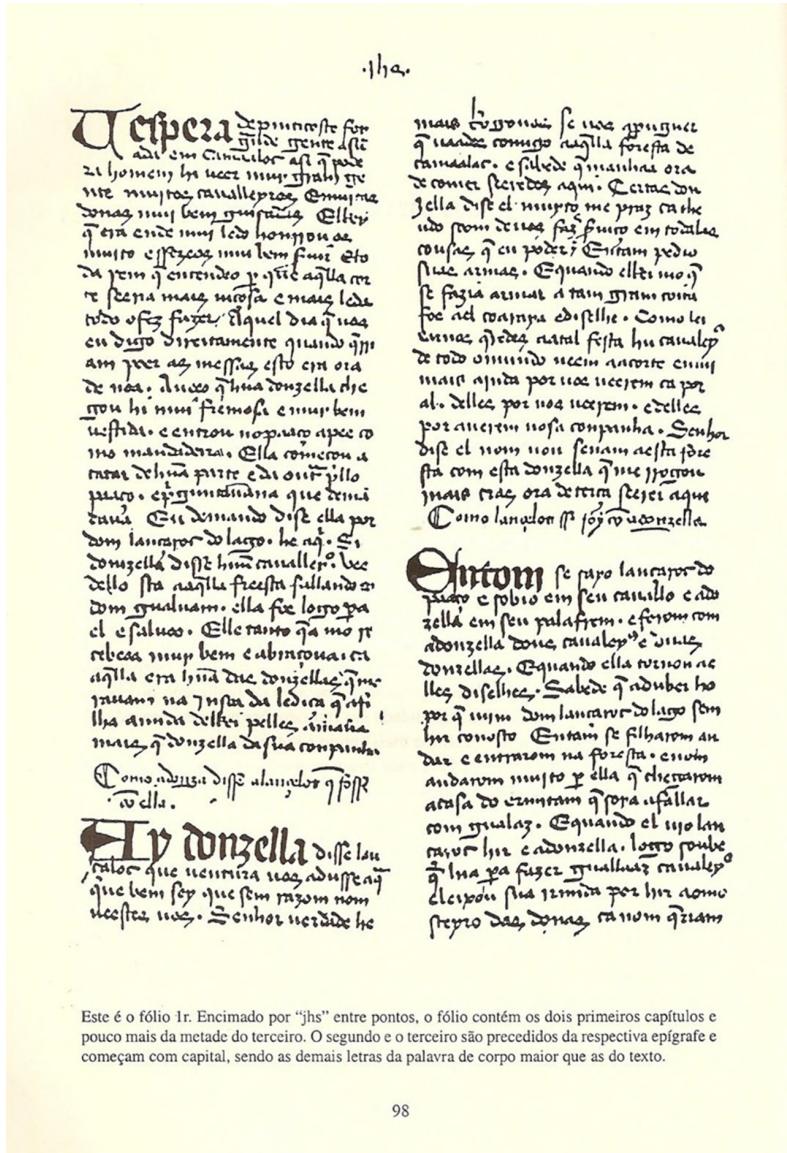 ·jhs·
Vespera de pinticoste foi
gride gente asũ
ada em Camaaloc asi q̃ pode
ra homem hi veer mui gram ge
nte muitos cavalleyros E muitas
donas mui bem guisadas Elrey
q̃ era ende mui ledo honrrou os
muito e feze os mui bem seruir E to
da rem q̃ entendeo per q̃ aq̃lla cor
te seeria mais viçosa e mais leda
todo o fez fazer Aquel dia q̃ vos
eu digo direitamente quando q̃ri
am poer as mesas esto era ora
de noa. Aveo q̃ hũa donzella che
gou hi mui fremosa e muy bem
vestida. e entrou no paaço a pee co
mo mandadeira. Ella começou a
catar de hũa parte e da outr̃ pollo
paaço. e perguntavãna que demã
dava Eu demando dise ella por
dom lancarot do lago. he aqui. Si
donzella disse huũ cavalleyro. Vee
dello sta aaq̃lla freesta fallando cõ
dom gualuam. ella foe logo pera
el e salvuo o. Elle tanto q̃ a vio re
cebeoa muy bem e abraçoua. ca
aq̃lla era hũa das donzellas q̃ mo
ravam na Insoa da lediça q̃ a fi
lha amida delrei pelles amava
mais q̃ donzella da sua conpanha
Como a donza disse a lançalot q̃ fosse
cõ ella.
Ay donzella disse lan
çalot que ventura vos adusse aq̃
que bem sey que sem razom nom
veestes vos. Senhor verdade he
mais rogovos se vos aprouguer
q̃ vaades comigo aaq̃lla foresta de
camaalot. e sabede q̃ manhãa ora
de comer seeredes aqui. Certas don
zella dise el muyto me praz ca the
udo soom de vos fazer serviço em todalas
cousas q̃ eu poder Entam pedio
suas armas. E quando elrei vio q̃
se fazia armar a tam gram coita
foe a el com a raynha e diselhe. Como lei
xarnos q̃redes a atal festa hu cavaleyros
de todo o mundo veem aa corte e mui
mais ainda por vos veerem ca por
al. delles por vos veerem. e delles
por averem vosa conpanha. Senhor
dise el nom vou senam a esta fore
sta com esta donzella q̃ me rrogou
mais cras ora de terça seerei aqui
Como lançalot se foy cõ a donzella
Entom se sayo lancarot do
paaço e sobio em seu cavallo e a do
zella em seu palafrem. e forom com
a donzella dous cavaleyros e duas
donzellas. E quando ella tornou a e
lles diselhes. Sabede q̃ adubei ho
por q̃ viim dom lancarot do lago sem
hir conosco Entam se filharom an
dar e entrarom na foresta. e nom
andarom muito per ella q̃ chegarom
a casa do ermitam q̃ soya a fallar
com gualaz. E quando el vio lan
carot hir e a donzella. logo soube
q̃ hia pera fazer gualluaz cavaleyro
e leixou sua irmida por hir ao mo
steyro das donas ca nom q̃riam
Este é o fólio 1r. Encimado por “jhs” entre pontos, o fólio contém os dois primeiros capítulos e
pouco mais da metade do terceiro. O segundo e o terceiro são precedidos da respectiva epígrafe e
começam com capital, sendo as demais letras da palavra de corpo maior que as do texto.
98